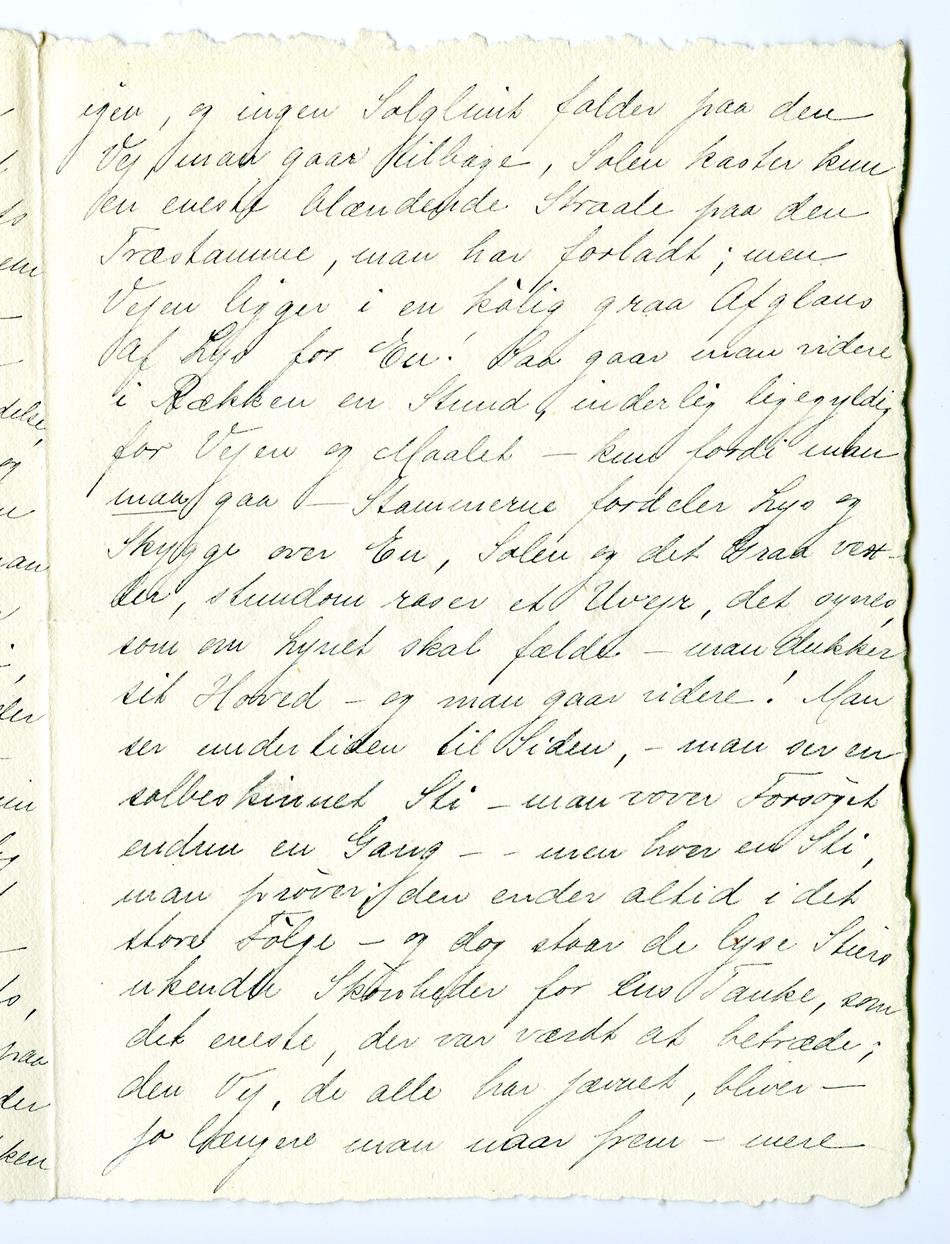 igen, og ingen Solglimt falder paa den
Vej, man gaar tilbage, Solen kaster kun
en eneste blændende Straale paa den
Træstamme, man har forladt; men
Vejen ligger i en kølig graa Afglans
af Lys for En! Saa gaar man videre
i Rækken en Stund, inderlig ligegyldig
for Vejen og Maalet — kun fordi man
maa gaa — Stammerne fordeler Lys og
Skygge over En, Solen og det Graa vex-
ler, stundom raser et Uvejr, det synes,
som om Lynet skal fælde — man dukker
sit Hoved — og man gaar videre! Man
ser undertiden til Siden, — man ser en
solbeskinnet Sti — man vover Forsøget
endnu en Gang — - men hver en Sti,
man prøver, den ender altid i det
store Følge — og dog staar de lyse Stiers
ukendte Skønheder for Ens Tanke, som
det eneste, der var værdt at betræde;
den Vej, de alle har jævnet, bliver —
jo længere man naar frem — mere
delse,
og
man
paa
der